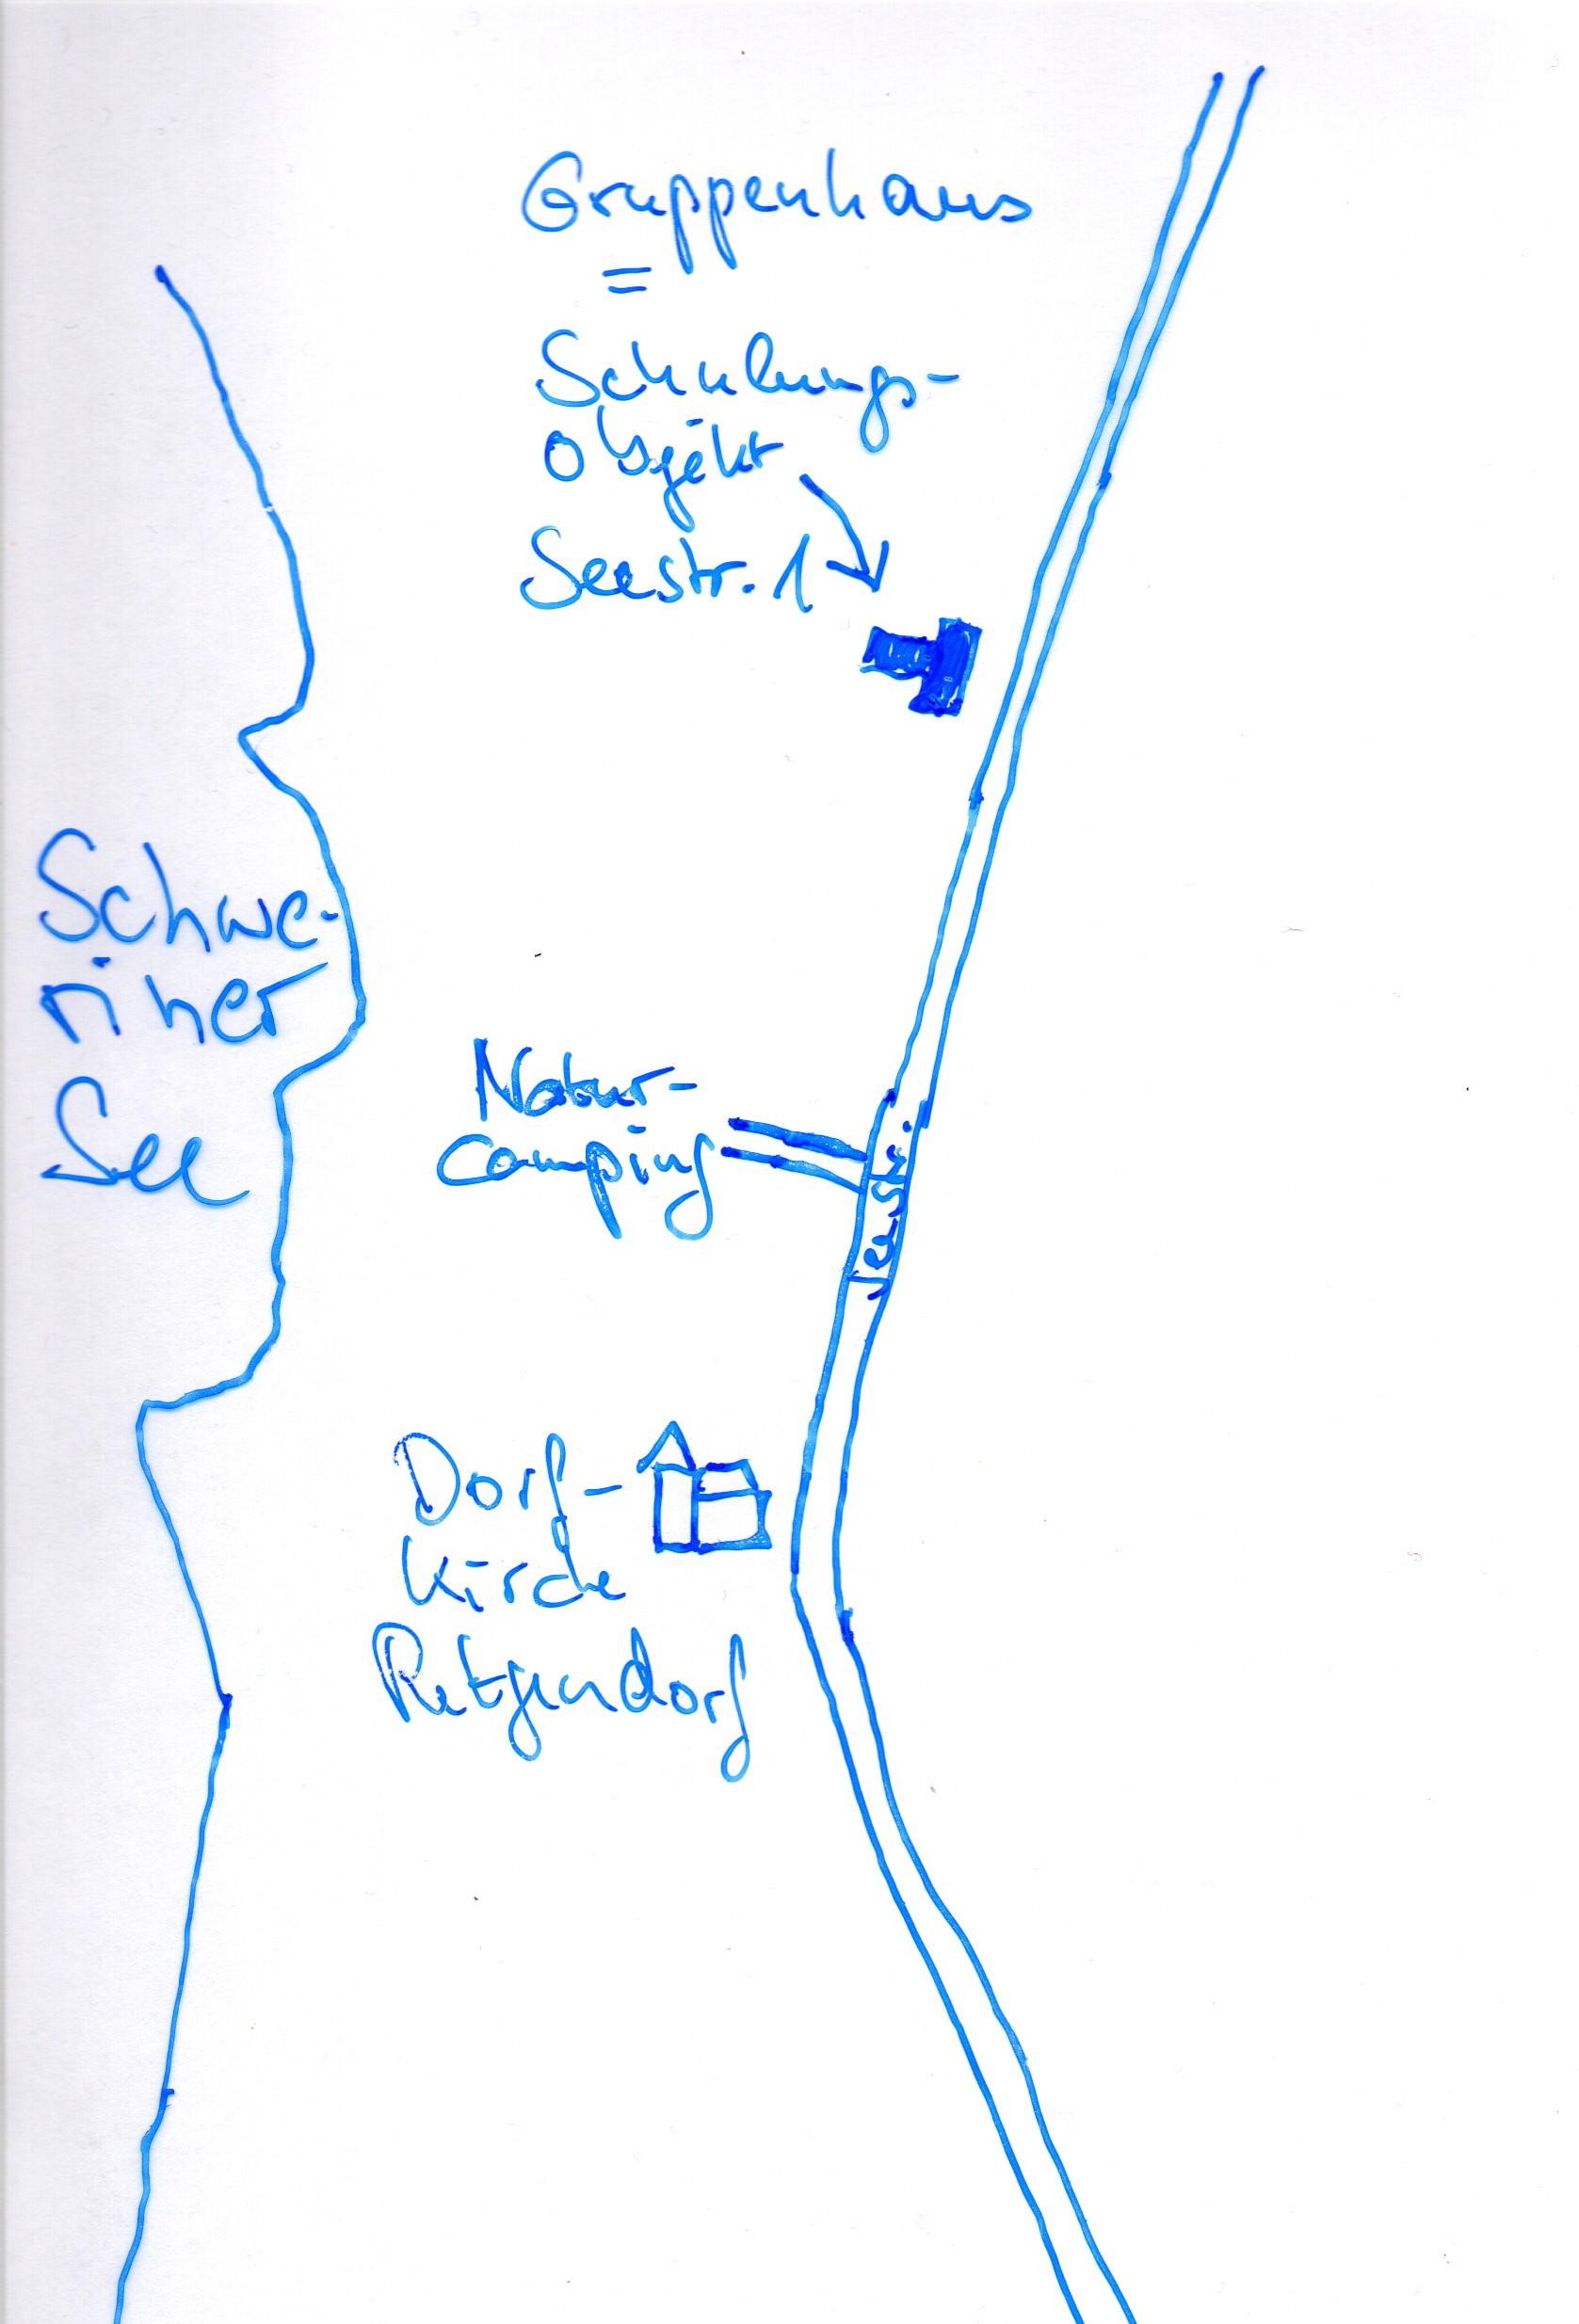 Gruppenhaus
=
Schulungs-
objekt
Seestr. 1
Schwe-
riner
See
Natur-
camping
Seestr.
Dorf-
kirche
Retgendorf